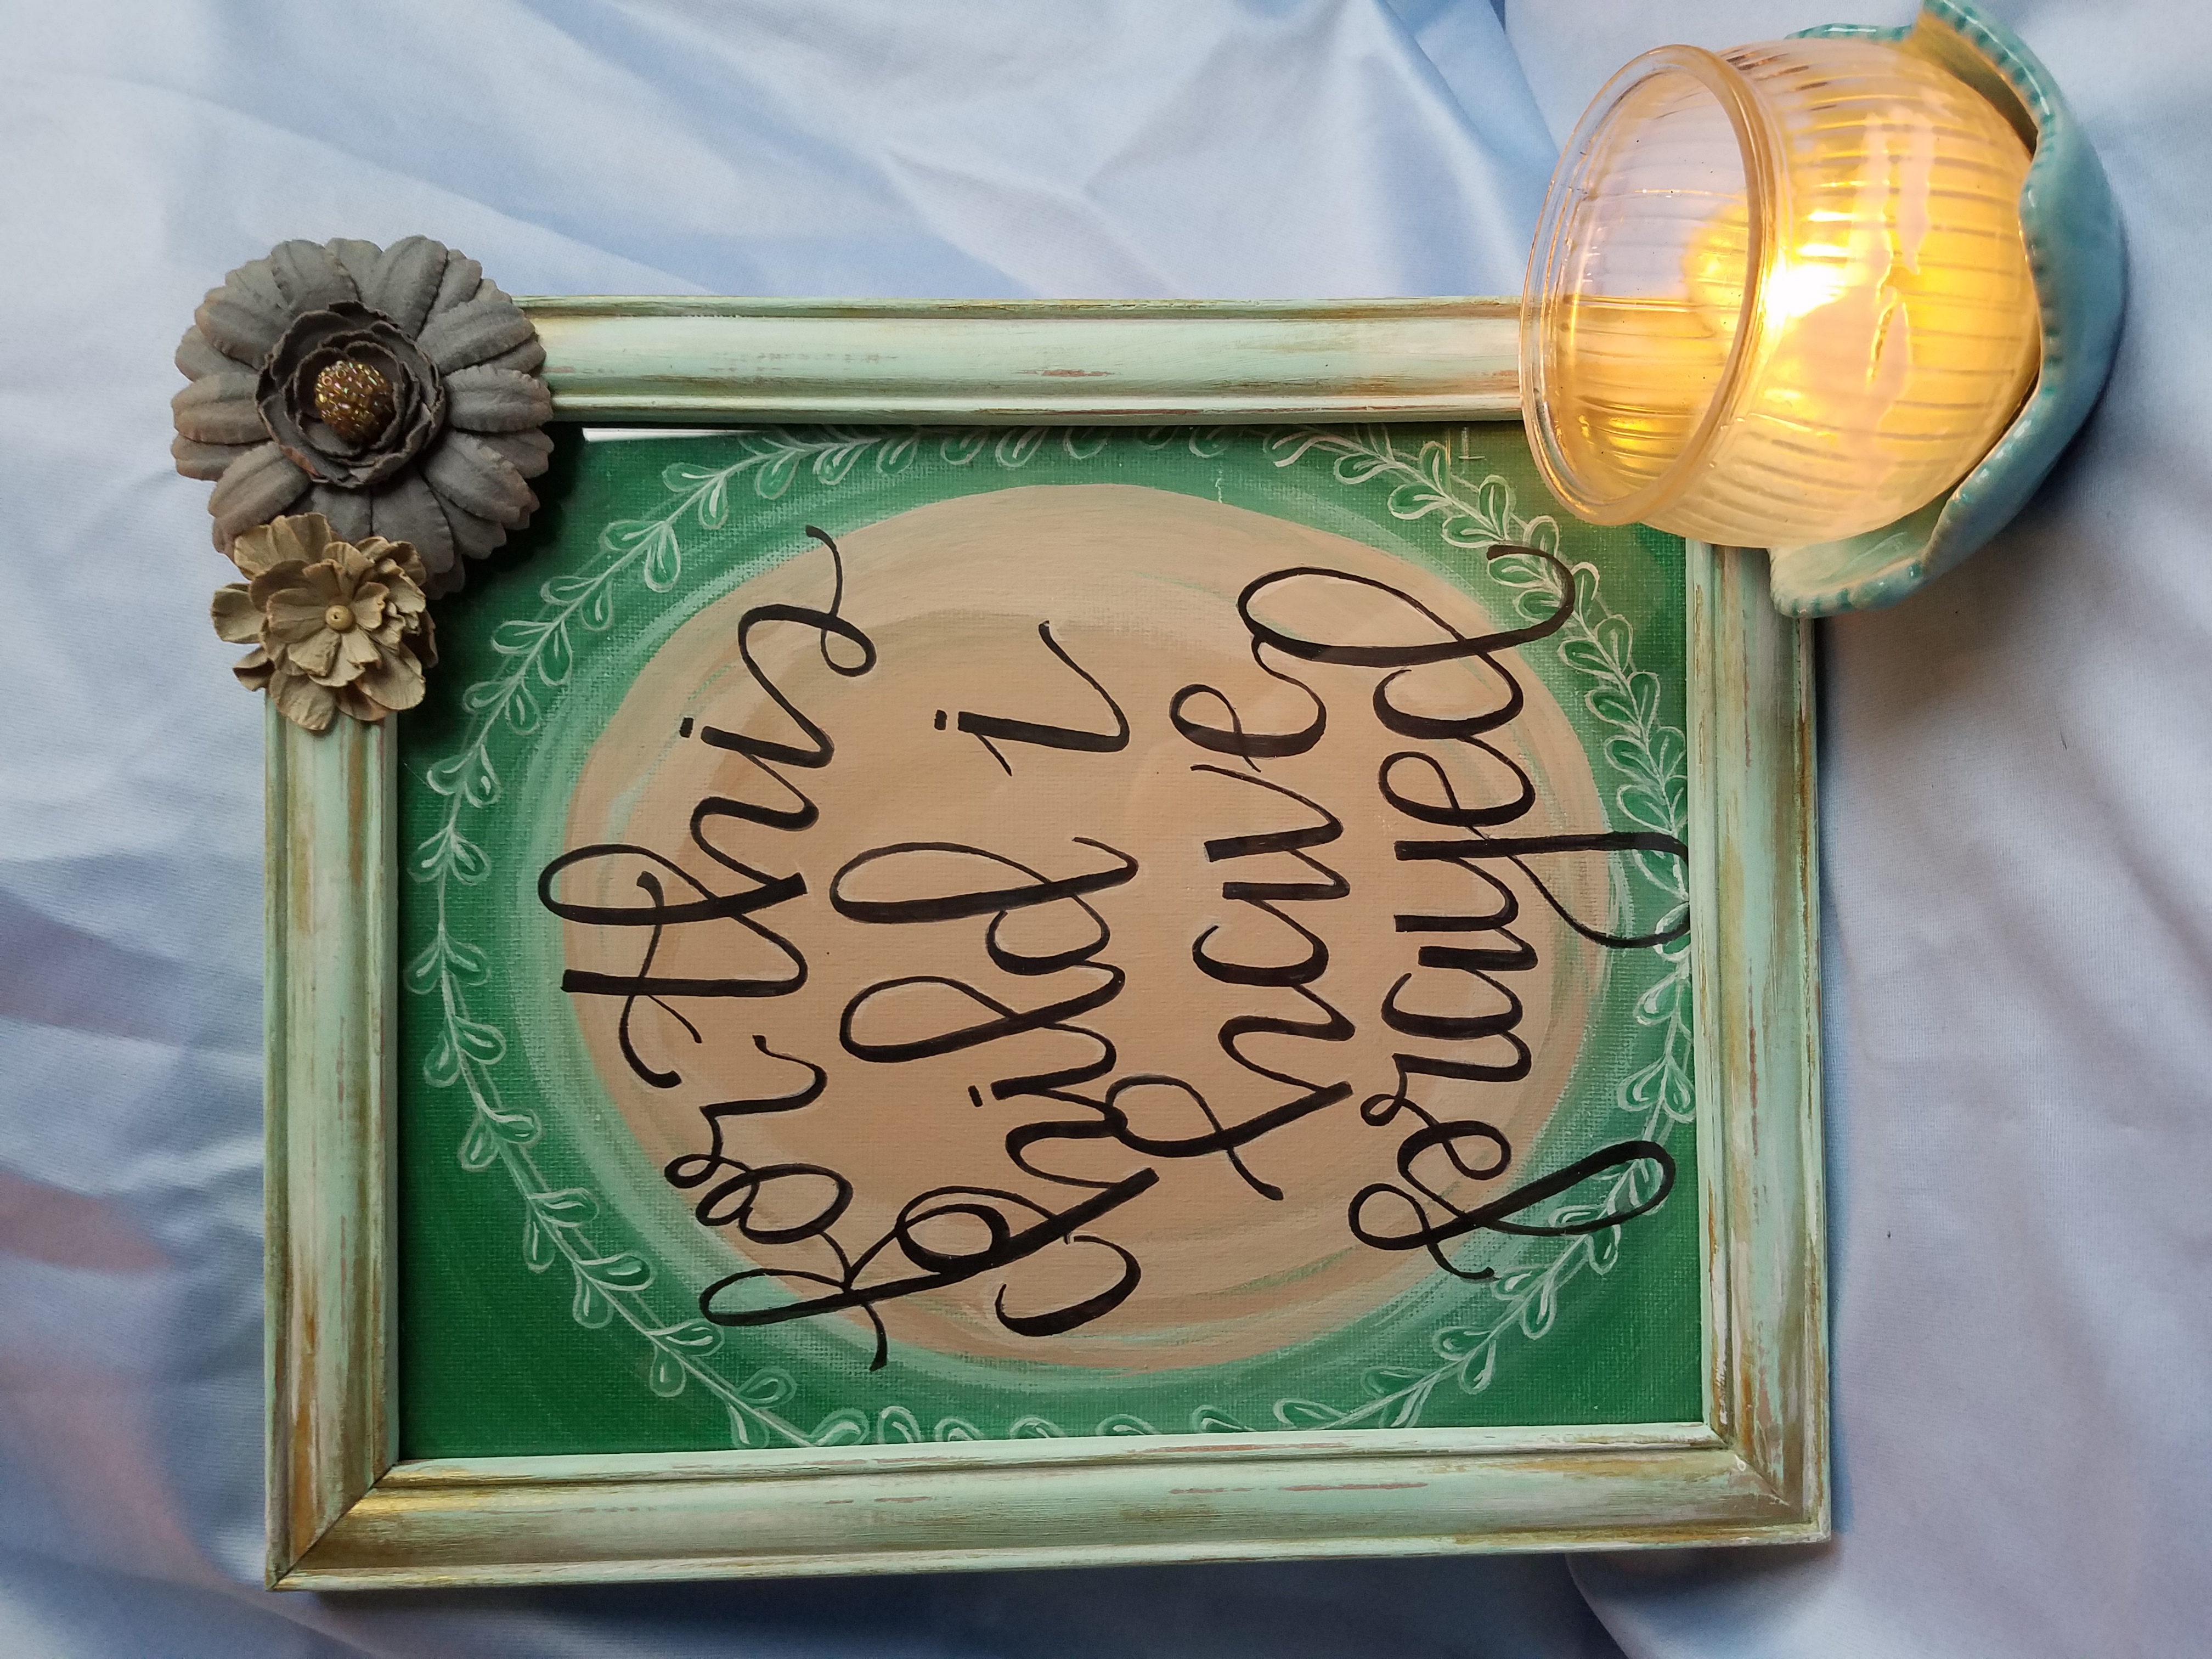 for this
child i
have
prayed